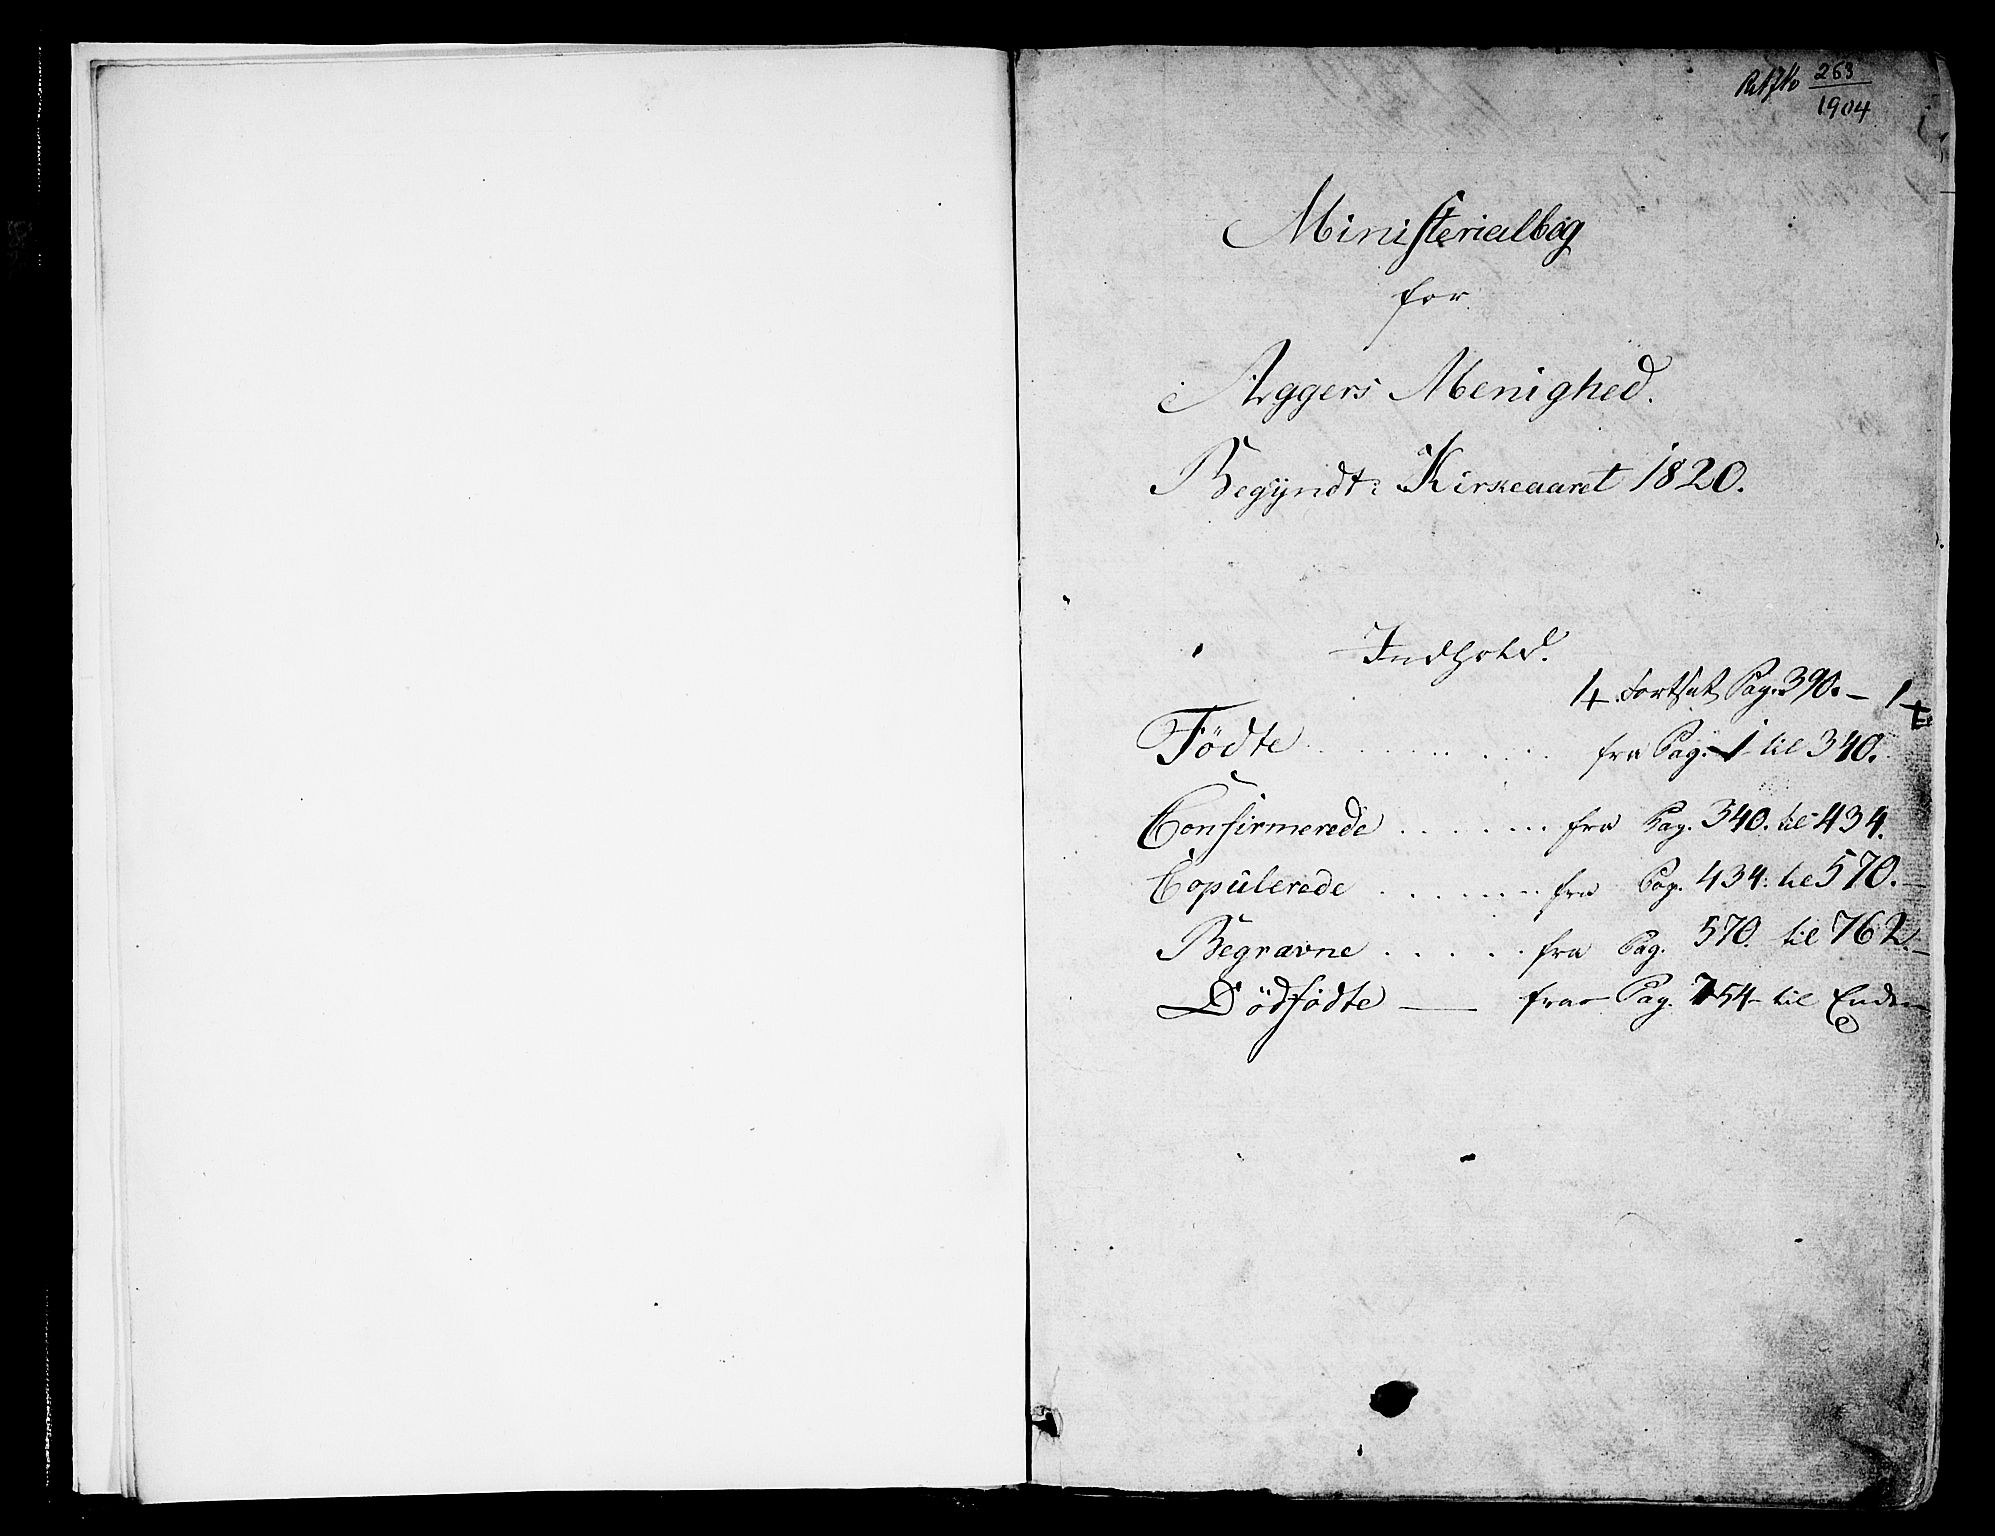 263
1904
Ministerialbog
for
Aggers Menighed.
Begyndt i Kirkeaaret 1820.
Indhold.
Fortsat Pag. 390. –
Födte . . . . . . . fra Pag. 1 til 340.
Confirmerede . . . . . . fra Pag. 340. til 434.
Copulerede . . . . . . . fra Pag. 434. til 570. –
Begravne . . . . . fra Pag. 570. til 762. –
Dödfödte — fra Pag. 754 til Enden